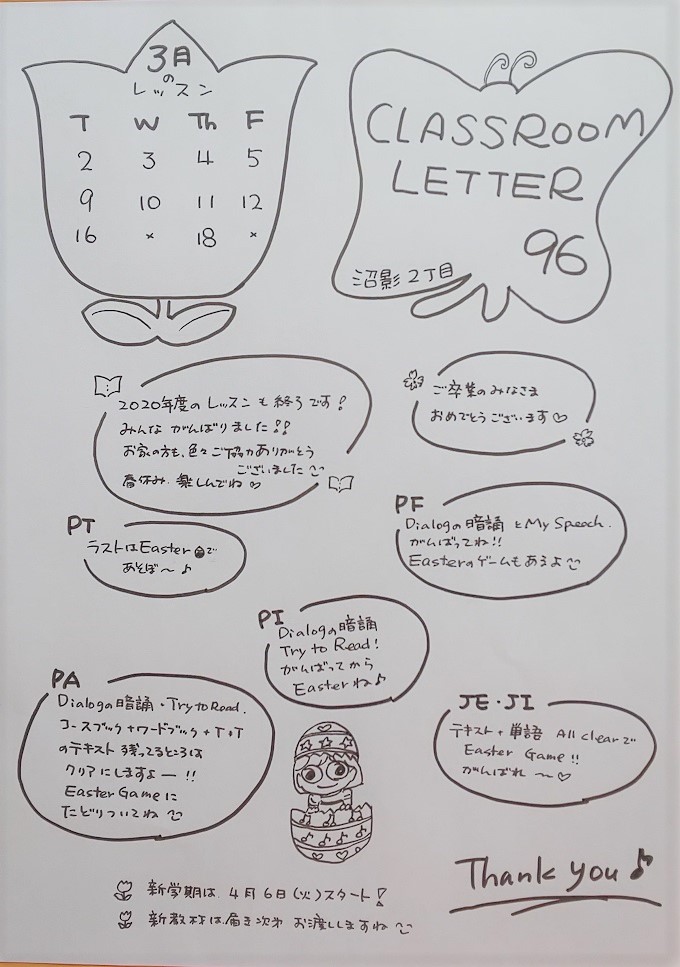 3月
の
レッスン
T W Th F
2 3 4 5
9 10 11 12
16 × 18 ×
CLASSROOM
LETTER
96
沼影2丁目
2020年度のレッスンも終了です!
みんな がんばりました!!
お家の方も、色々ご協力ありがとう
ございました
春休み 楽しんでね♡
ご卒業のみなさま
おめでとうございます♡
PT
ラストはEasterで
あそぼ〜♪
PF
Dialogの暗誦とMy Speech.
がんばってね!!
Easterのゲームもあるよ
PI
Dialogの暗誦
Try to Read!
がんばってから
Easterね♪
PA
Dialogの暗誦・Try to Read.
コースブック+ワードブック+T・T
のテキスト残ってるところは
クリアにしますよー!!
Easter Gameに
たどりついてね
JE・JI
テキスト+単語 All clearで
Easter Game!!
がんばれ〜♡
Thank you♪
新学期は、4月6日(火)スタート!
新教材は、届き次第 お渡ししますね